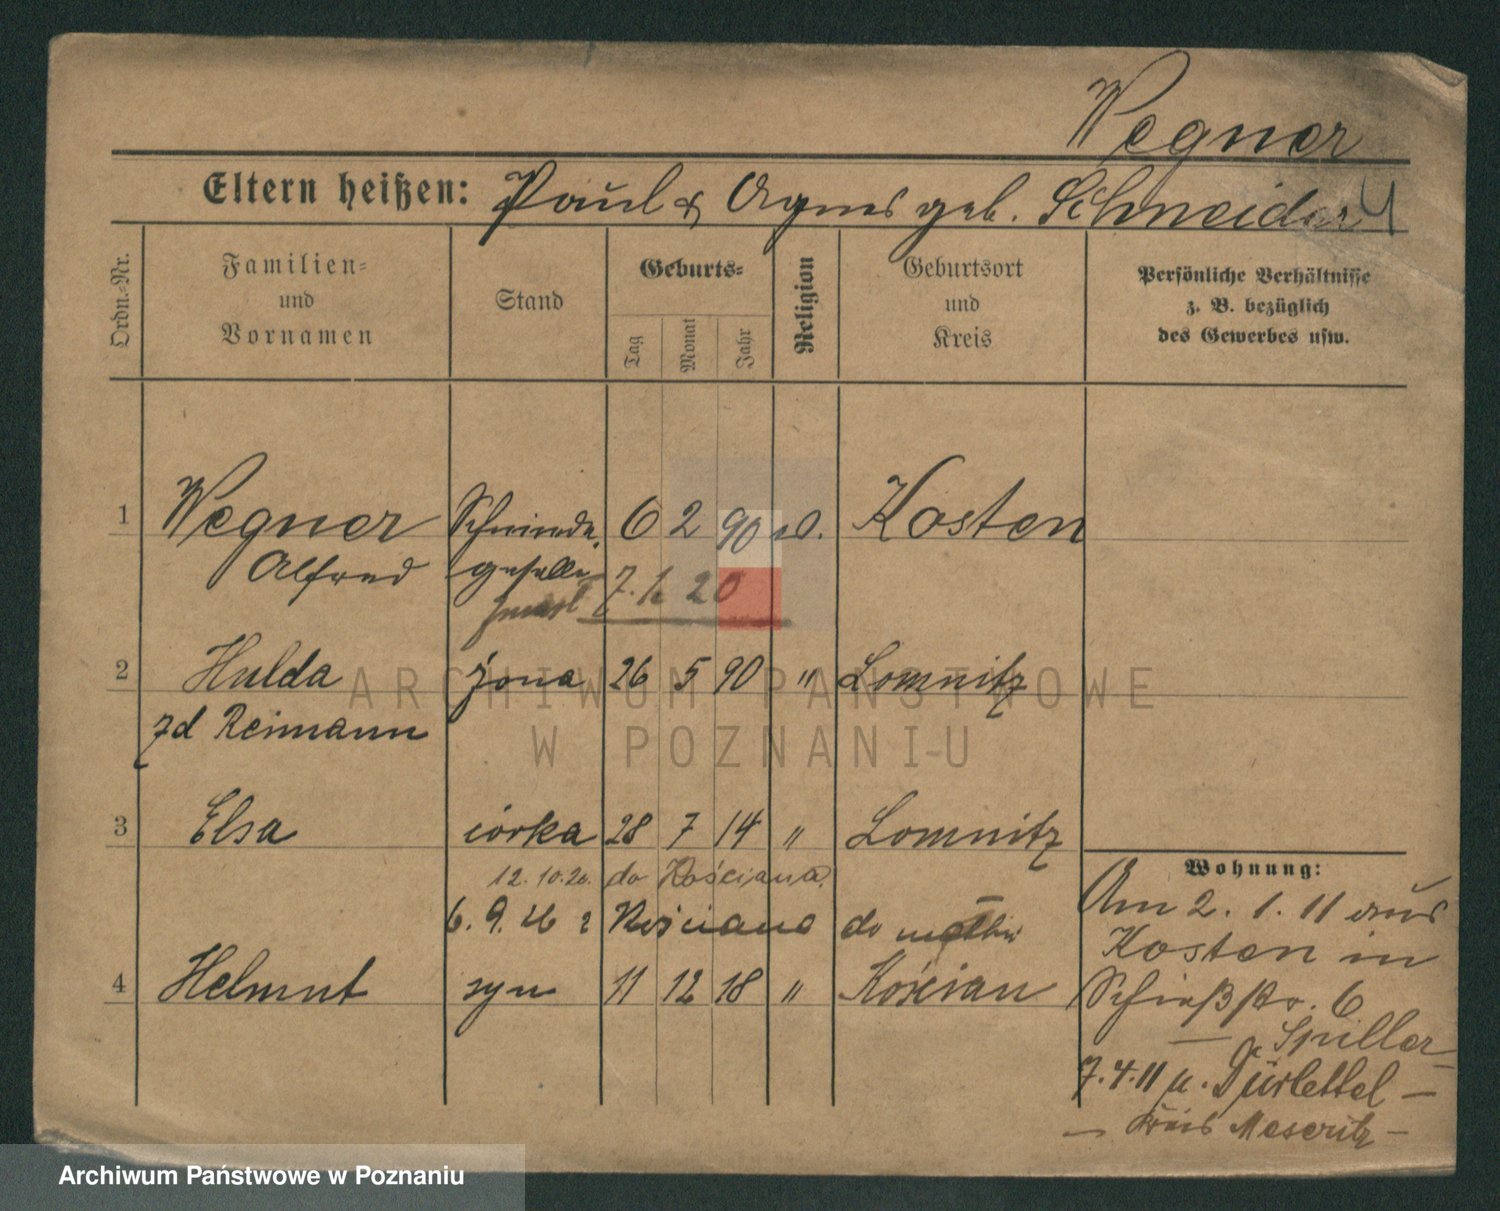 Wegner
Eltern heißen: Paul & Agnes geb. Schneider
Ordn.-Nr.
Familien-
und
Vornamen
Stand
Geburts-
Tag
Monat
Jahr
Religion
Geburtsort
und
Kreis
Persönliche Verhältnisse
z. B. bezüglich
des Gewerbes usw.
1 Wegner 6 2 90 Kosten
Alfred geselle
7. 1. 20
2 Hulda żona 26 5 90 " Lomnitz
zd Reimann
ARCHIWUM PAŃSTWOWE
W POZNANIU
3 Elsa córka 28 7 14 " Lomnitz
12.10.20. do Kościana
6. 9. Kościana do
4 Helmut syn 11 12 18 " Kościan
Wohnung:
Am 2. 1. 11 aus
Kosten in
Schießstr. 6
Spiller
7.4.11 n. Dürlettel
Kreis Meseritz
Archiwum Państwowe w Poznaniu